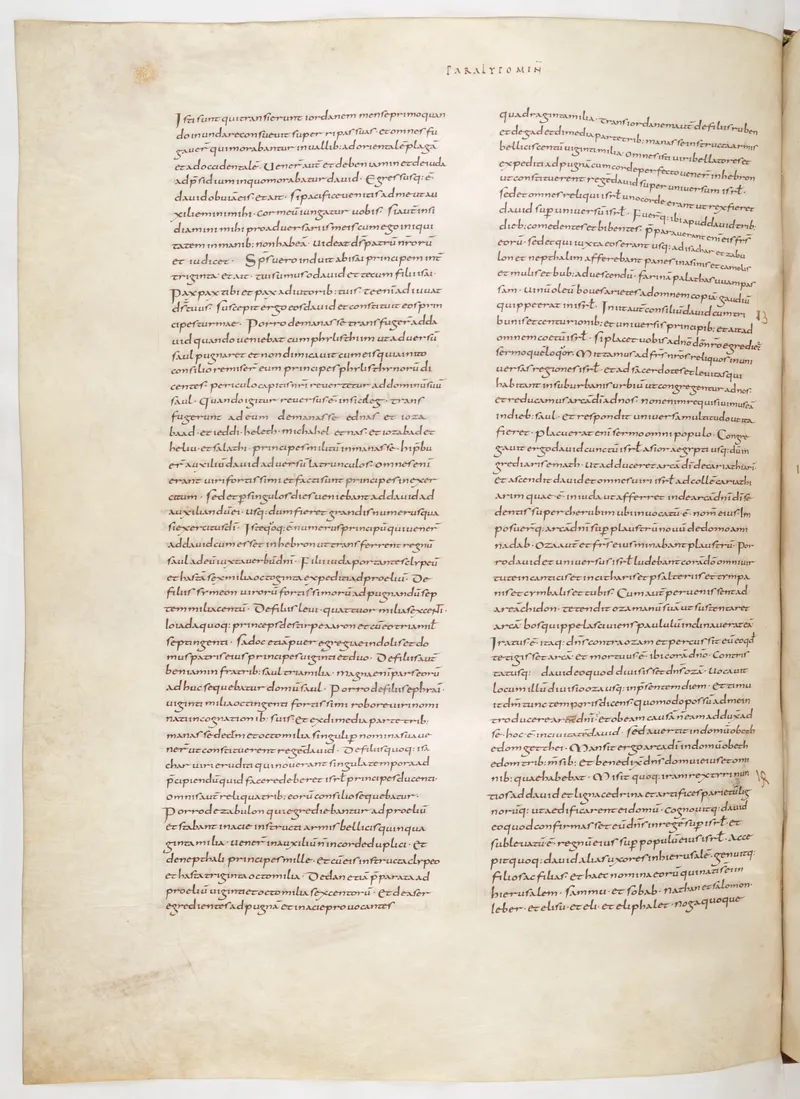 PARALYPOMIN̄
Isti sunt qui transierunt iordanem mense primo quan
do inundare consueuit super ripas suas · et omnes fu
gauer̄ qui morabantur in uallib: ad orientalē plagā
et ad occidentalē · Uener̄ aut̄ et de beniamin et de iuda
ad p̄sidium in quo morabatur dauid · Egressusq: ē
dauid obuiā eis · et ait · Si pacifice uenistis ad me ut au
xiliemini mihi · cor meū iungatur uobis · si aut̄ insi
diamini mihi pro aduersariis meis cum ego iniqui
tatem in manib: non habeā · uideat d̄s patrū n̄rorū
et iudicet · Sp̄s uero induit abisai principem int̄
triginta · et ait · tui sumus o dauid et tecum fili isai ·
Pax pax tibi et pax adiutorib: tuis · te eni̅ adiuuat
d̄s tuus · suscepit ergo eos dauid et constituit eos prin
cipes turmae · Porro de manasse trans fuger̄ ad da
uid quando ueniebat cum philisthiim ut aduersū
saul pugnaret et non dimicauit cum eis quia inito
consilio remiser̄ eum principes philisthinorū di
centes · periculo capitis n̄ri reuertetur ad dominū suū
saul · Quando igitur reuersus ē in siceleg · trans
fugerunt ad eum de manasse · ednas et ioza
baad · et ieddihel et michahel · et nas · et iozabad et
heliu · et salathi · principes militū in manasse · hi p̄bu
er̄ auxiliū dauid aduersū latrunculos · omnes eni̅
erant uiri fortissimi et facti sunt principes in exer
citum · sed et p singulos dies ueniebant ad dauid ad
auxiliandū ei · usq: dum fieret grandis numerus qua
si exercitus d̄i · Isteq̣oq: ē numerus principū qui uener̄
ad dauid cum esset in hebron ut transferrent regnū
saul ad eū iuxta uerbū dn̄i · Filii iuda portantes clypeū
et hastā sex milia octoginta expediti ad proeliū · De
filiis symeon uirorū fortissimorū ad pugnandū sep
tem milia centū · De filiis leui · quattuor milia sexcenti ·
Ioiada quoq: princeps de stirpe aaron et cū eo tria mil
septingenti · sadoc etiā puer egregiae indolis et do
mus patris eius principes uiginti et duo · De filiis aut̄
beniamin fratrib: saul tria milia · magna eni̅ pars eorū
adhuc sequebatur domū saul · Porro de filiis ephrai
uiginti milia octingenti fortissimi robore uiri nomi
nati in cognationib: suis · Et ex dimedia parte trib:
manasse decē et octo milia singuli p nomina sua ue
ner̄ ut constituerent regē dauid · De filiis quoq: isa
char uiri eruditi qui nouerant singula tempora ad
p̄cipiendū quid facere deberet isrl̄ principes ducenti ·
omnis aut̄ reliqua trib: eorū consilio sequebatur ·
Porro de zabulon qui egrediebantur ad proeliū
et stabant in acie instructi armis bellicis quinqua
ginta milia · uener̄ in auxiliū n̄ in corde duplici · Et
de nepthali principes mille · et cū eis instructa clypeo
et hasta triginta octo milia · De dan etiā p̄parata ad
proeliū uiginti et octo milia sexcentorū · Et de aser
egredientes ad pugnā et in acie prouocantes
quadraginta milia · trans iordanem aut̄ de filiis ruben
et de gad et dimedia parte trib: manasse instructa armis
bellicis centū uiginti milia · omnes isti uiri bellatores et
expediti ad pugnā cum corde perfecto uener̄ in hebron
ut constituerent regē dauid super uniuersum isrl̄ ·
sed et omnes reliqui isrl̄ uno corde erant ut rex fieret
dauid sup uniuersū isrl̄ · Fuer̄q: ibi apud dauid trib:
dieb: comedentes et bibentes · p̄parauerant eni̅ eis fr̄s
eorū · sed et qui iuxta eos erant usq: ad isachar et zabu
lon et nepthalim afferebant panes in asinis et camelis
et mulis et bub: ad uescendū · farinā palathas uuam pas
sam · uinū oleū boues arietes ad omnem copiā · gaudiū
quippe erat in isrl̄ · Iniit aut̄ consiliū dauid cum tri
bunis et centurionib: et uniuersis principib: et ait ad
omnem coetū isrl̄ · si placet uobis a dn̄o dō n̄ro egreditur
sermo quē loqor̄ · Mittamus ad fr̄s n̄ros reliquos in uni
uersas regiones isrl̄ · et ad sacerdotes et leuitas qui
habitant in suburbanis urbiū ut congregentur ad nos ·
et reducamus arcā d̄i ad nos · non enim requisiuimus eā
in dieb: saul · et respondit uniuersa multitudo ut ita
fieret · placuerat eni̅ sermo omni populo · Congre
gauit ergo dauid cunctū isrl̄ a sior aegypti usq: dum
grediaris emath · ut adduceret arcā d̄i de cariathiari
et ascendit dauid et omnes uir isrl̄ ad collē cariathi
arim quae ē in iuda ut afferret inde arcā dn̄i d̄i se
dentis super cherubim ubi inuocatū ē nom̄ eius · Im
posuer̄q: arcā dn̄i sup plaustrū nouū de domo ami
nadab · oza aut̄ et fr̄s eius minabant plaustrū · Por
ro dauid et uniuersus isrl̄ ludebant corā dō omni uir
tute in canticis et in citharis et psalteriis et tympa
nis et cymbalis et tubis · Cum aut̄ peruenissent ad
areā chidon · tetendit oza manū suā ut sustentaret
arcā · bos quippe lasciuiens paululū inclinauerat eā
Iratus ē itaq: dn̄s contra ozam et percussit eū eo qd̄
tetigisset arcā · et mortuus ē ibi corā dn̄o · Contris
tatusq: dauid eo quod diuisisset dn̄s ozā · uocauit
locum illū diuisio oza usq: in p̄sentem diem · Et timu
it dn̄m tunc temporis dicens · quomodo possū ad me in
troducere arcā dn̄i · et ob eam causā n̄ eam adduxit ad
se · hoc ē in ciuitatē dauid · sed auertit in domū obeth
edom getthei · Mansit ergo arca dn̄i in domū obeth
edom trib: msīb: et benedixit dn̄s domui eius et omi
nib: quae habebat · Misit quoq: iram rex tyri nun
tios ad dauid et ligna cedrina et artifices parietū lig
norūq: ut aedificarent ei domū · cognouitq: dauid
eo quod confirmasset eū dn̄s in regē sup isrl̄ · et
subleuatū ē regnū eius sup populū eius isrl̄ · Acce
pit quoq: dauid alias uxores in hierusalē · genuitq:
filios ac filias · et haec nomina eorū qui nati sunt in
hierusalem · sammu · et sobab · nathan et salomon ·
Ieber · et elisu · et eli · et eliphalet · noga quoque